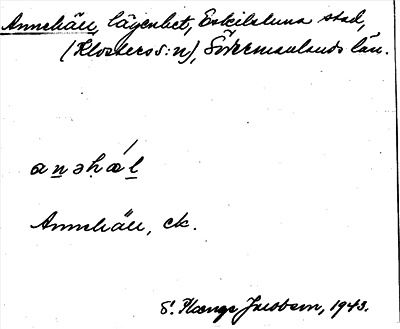 Annehäll, lägenhet, Eskilstuna stad,
(Klosters s:n), Södermanlands län.
anəhäl
Annehäll, ek.
S. Jacobsen, 1943.